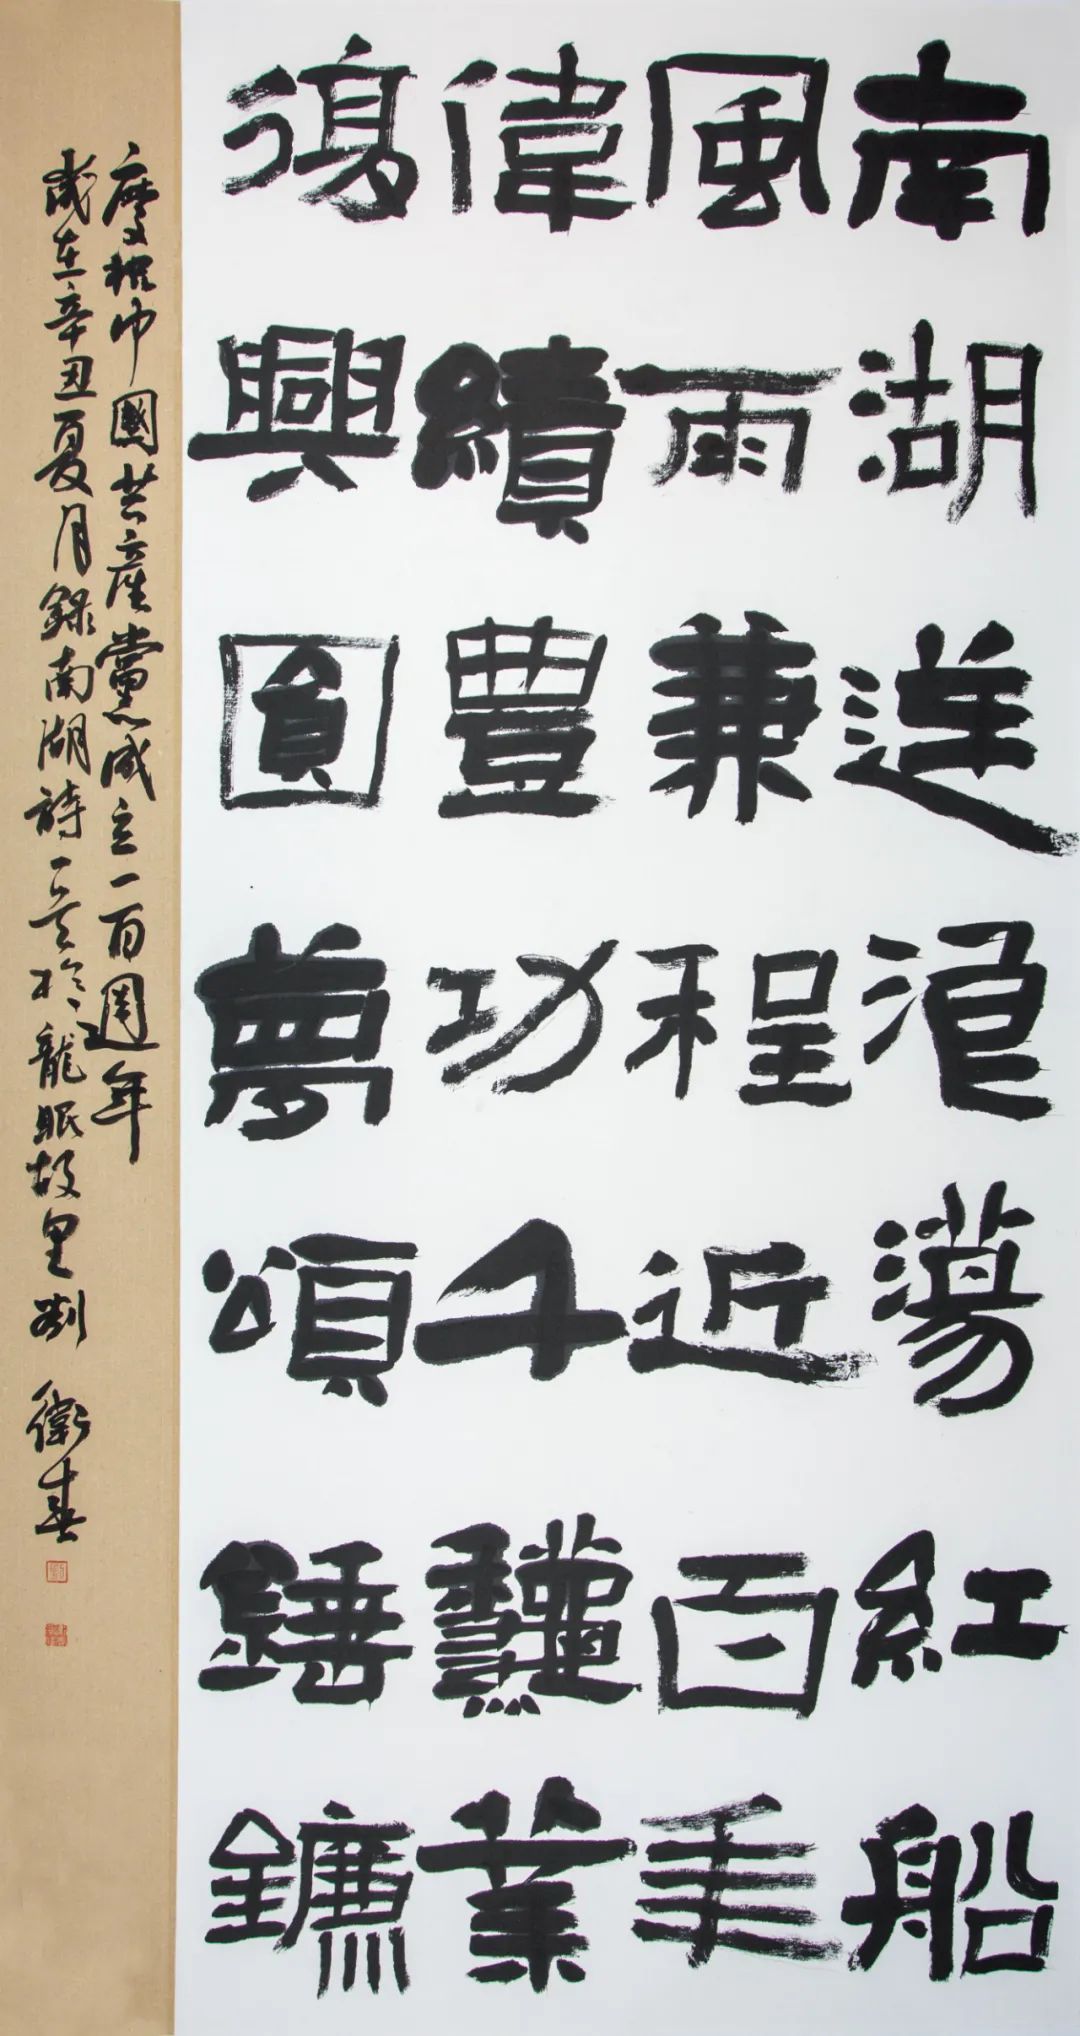 南湖浪蕩紅船
風雨兼程近百年
偉績豐功千秋業
復興圓夢頌錘鐮
慶祝中國共產黨成立一百週年
歲在辛丑夏月錄南湖詩一首於龍眠故里劉 衛春